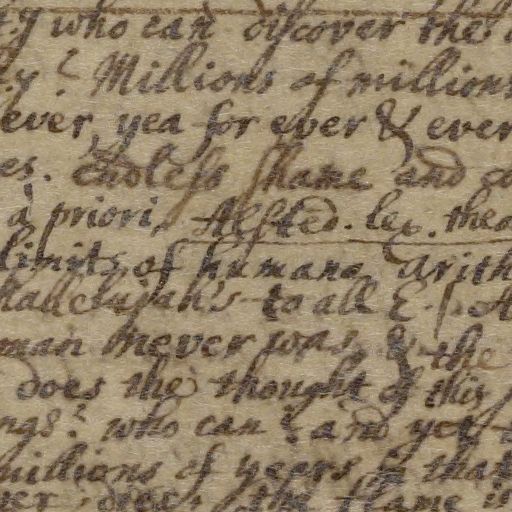 who can discover the
? Millions of millions
ever, yea for ever & ever
es. Endless shame and
à priori, Alsted. lex. theo
limits of humane Arith
Hallelujah's to all E.
man never was, & the
does the thought of this
ngs? who can? and yet
millions of years, in that
ver does the flame